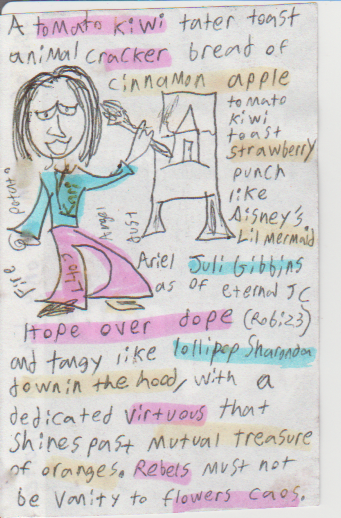 A tomato kiwi tater toast
animal cracker bread of
cinnamon apple
tomato
kiwi
toast
strawberry
punch
like
Disney's
Lil mermaid
Ariel Juli Gibbins
as of eternal JC
Hope over dope (Rob123)
and tangy like lollipop Sharonda
down in the hood, with a
dedicated virtuous that
shines past mutual treasure
of oranges. Rebels must not
be Vanity to flowers caos.
Fire @ potato
Angel